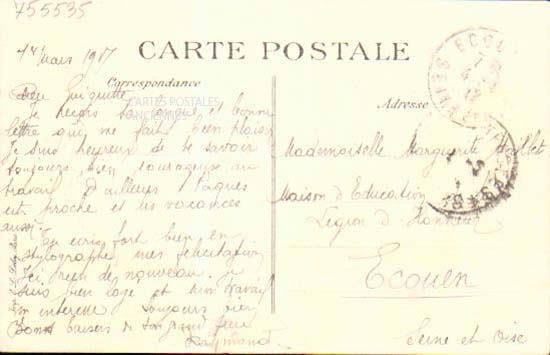 755535
14 Mars 1917
CARTE POSTALE
Correspondance
Adresse
CARTES POSTALES
Guiguitte
Je reçois ta longue et bonne
lettre qui me fait bien plaisir
Je suis heureux de te savoir
toujours bien courageuse au
travail D'ailleurs Pâques
est proche et les vacances
aussi.
Tu écris fort bien en
stylographe, mes félicitations
Ici rien de nouveau. Je
suis bien logé et mon travail
m'intéresse toujours
Bons baisers de ton grand frère
Raymond
Mademoiselle Marguerite
Maison d'Education
Légion d'Honneur
Ecouen
Seine et Oise